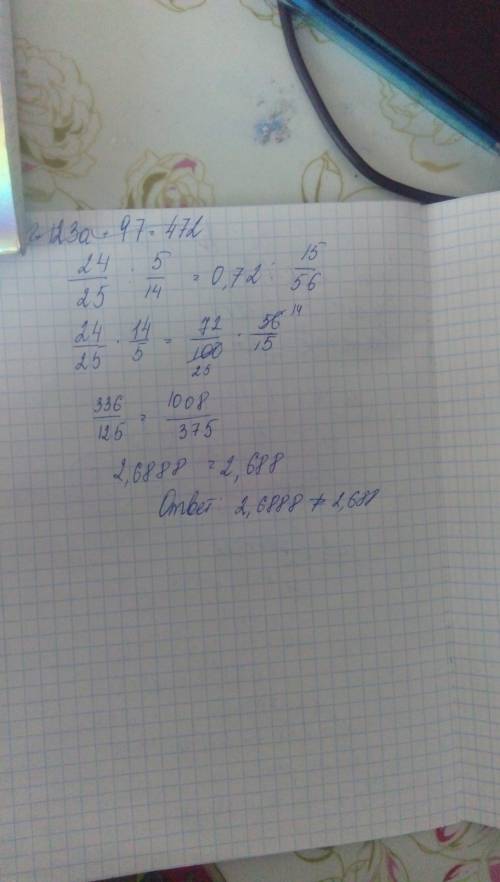 123a + 97 = 472
24/25 : 5/14 = 0,72 : 15/56
24/25 · 14/5 = 72/100 25 · 56 14/15
336/125 = 1008/375
2,6888 = 2,688
Ответ: 2,6888 ≠ 2,688